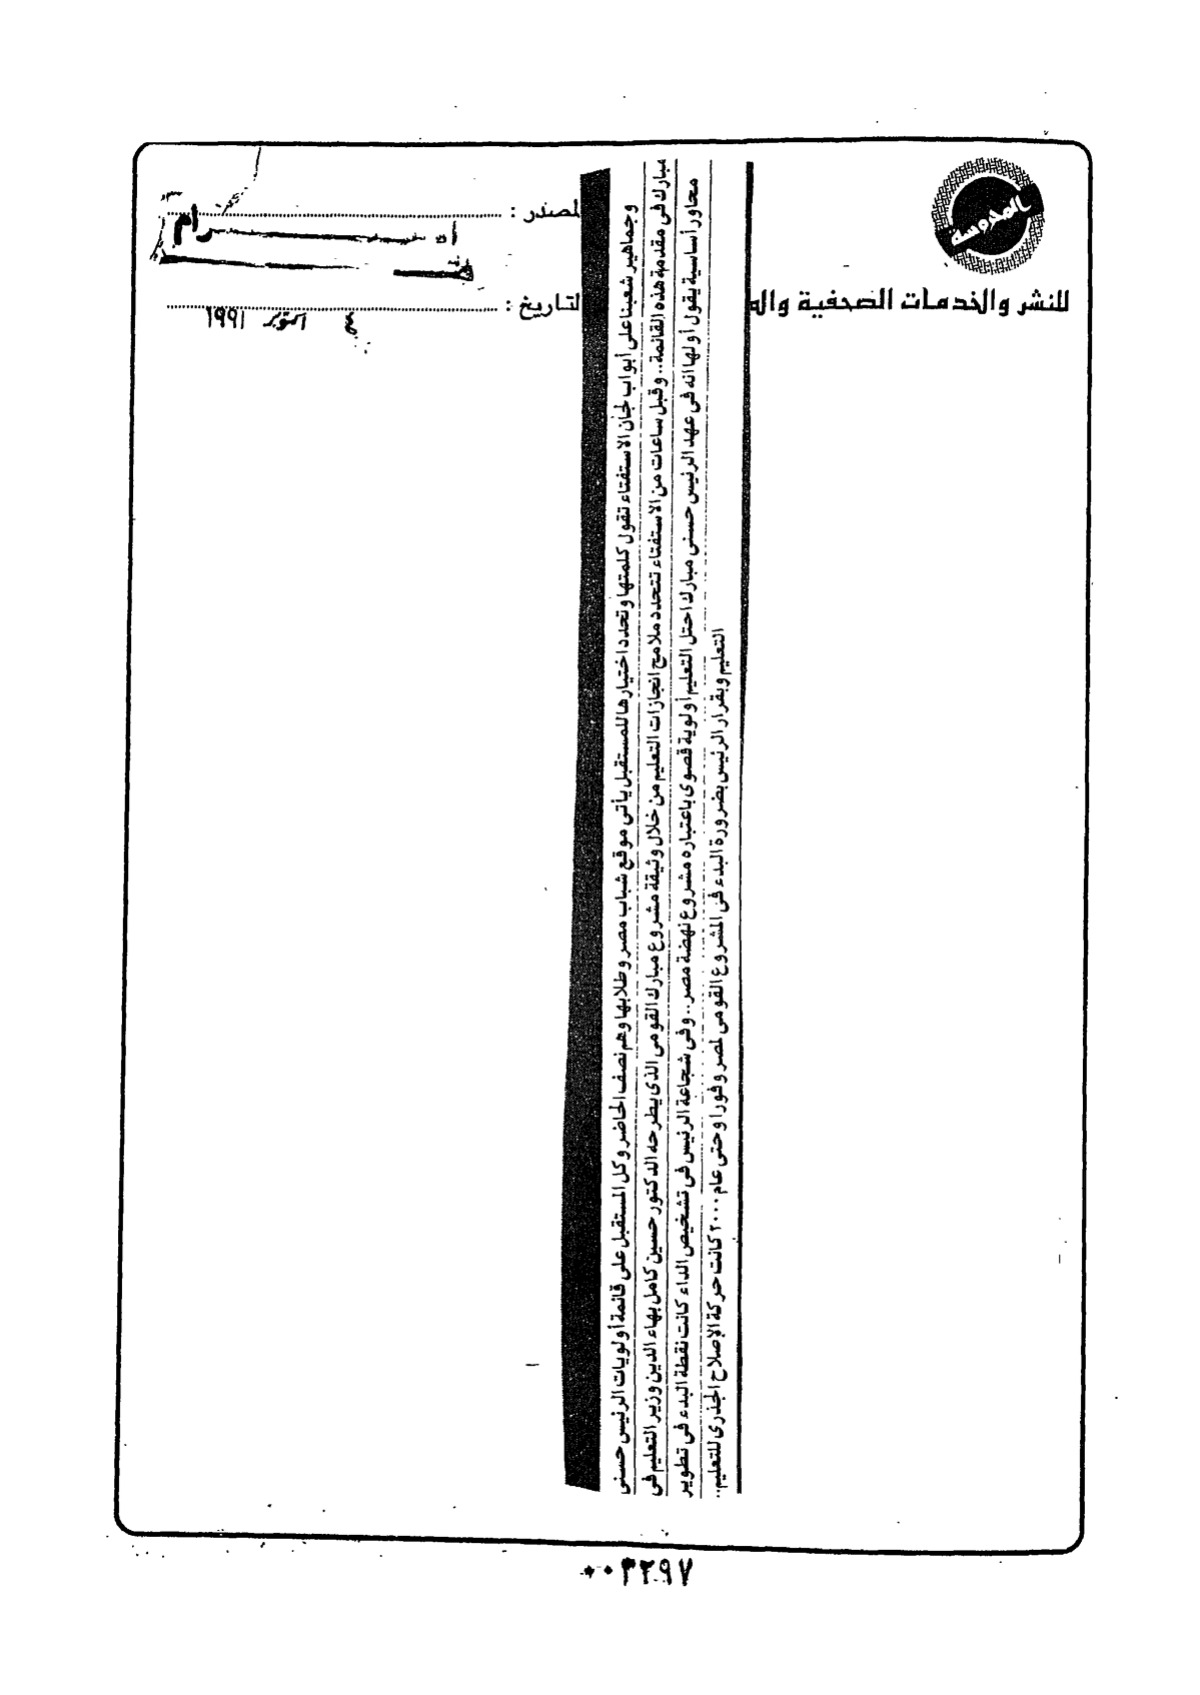 المحروسة
للنشر والخدمات الصحفية والم
لمصدر :
رام
لتاريخ :
٤ اكتوبر ١٩٩١
وجماهير شعبنا على أبواب لجان الاستفتاء تقول كلمتها وتحدد اختيارها للمستقبل يأتى موقع شباب مصر وطلابها وهم نصف الحاضر وكل المستقبل على قائمة أولويات الرئيس حسنى
مبارك فى مقدمة هذه القائمة.. وقبل ساعات من الاستفتاء تتحدد ملامح انجازات التعليم من خلال وثيقة مشروع مبارك القومى الذى يطرحه الدكتور حسين كامل بهاء الدين وزير التعليم فى
محاور أساسية يقول أولها انه فى عهد الرئيس حسنى مبارك احتل التعليم أولوية قصوى باعتباره مشروع نهضة مصر.. وفى شجاعة الرئيس فى تشخيص الداء كانت نقطة البدء فى تطوير
التعليم وبقرار الرئيس بضرورة البدء فى المشروع القومى لمصر وفورا وحتى عام ٢٠٠٠ كانت حركة الإصلاح الجذرى للتعليم..
٠٠٣٢٩٧